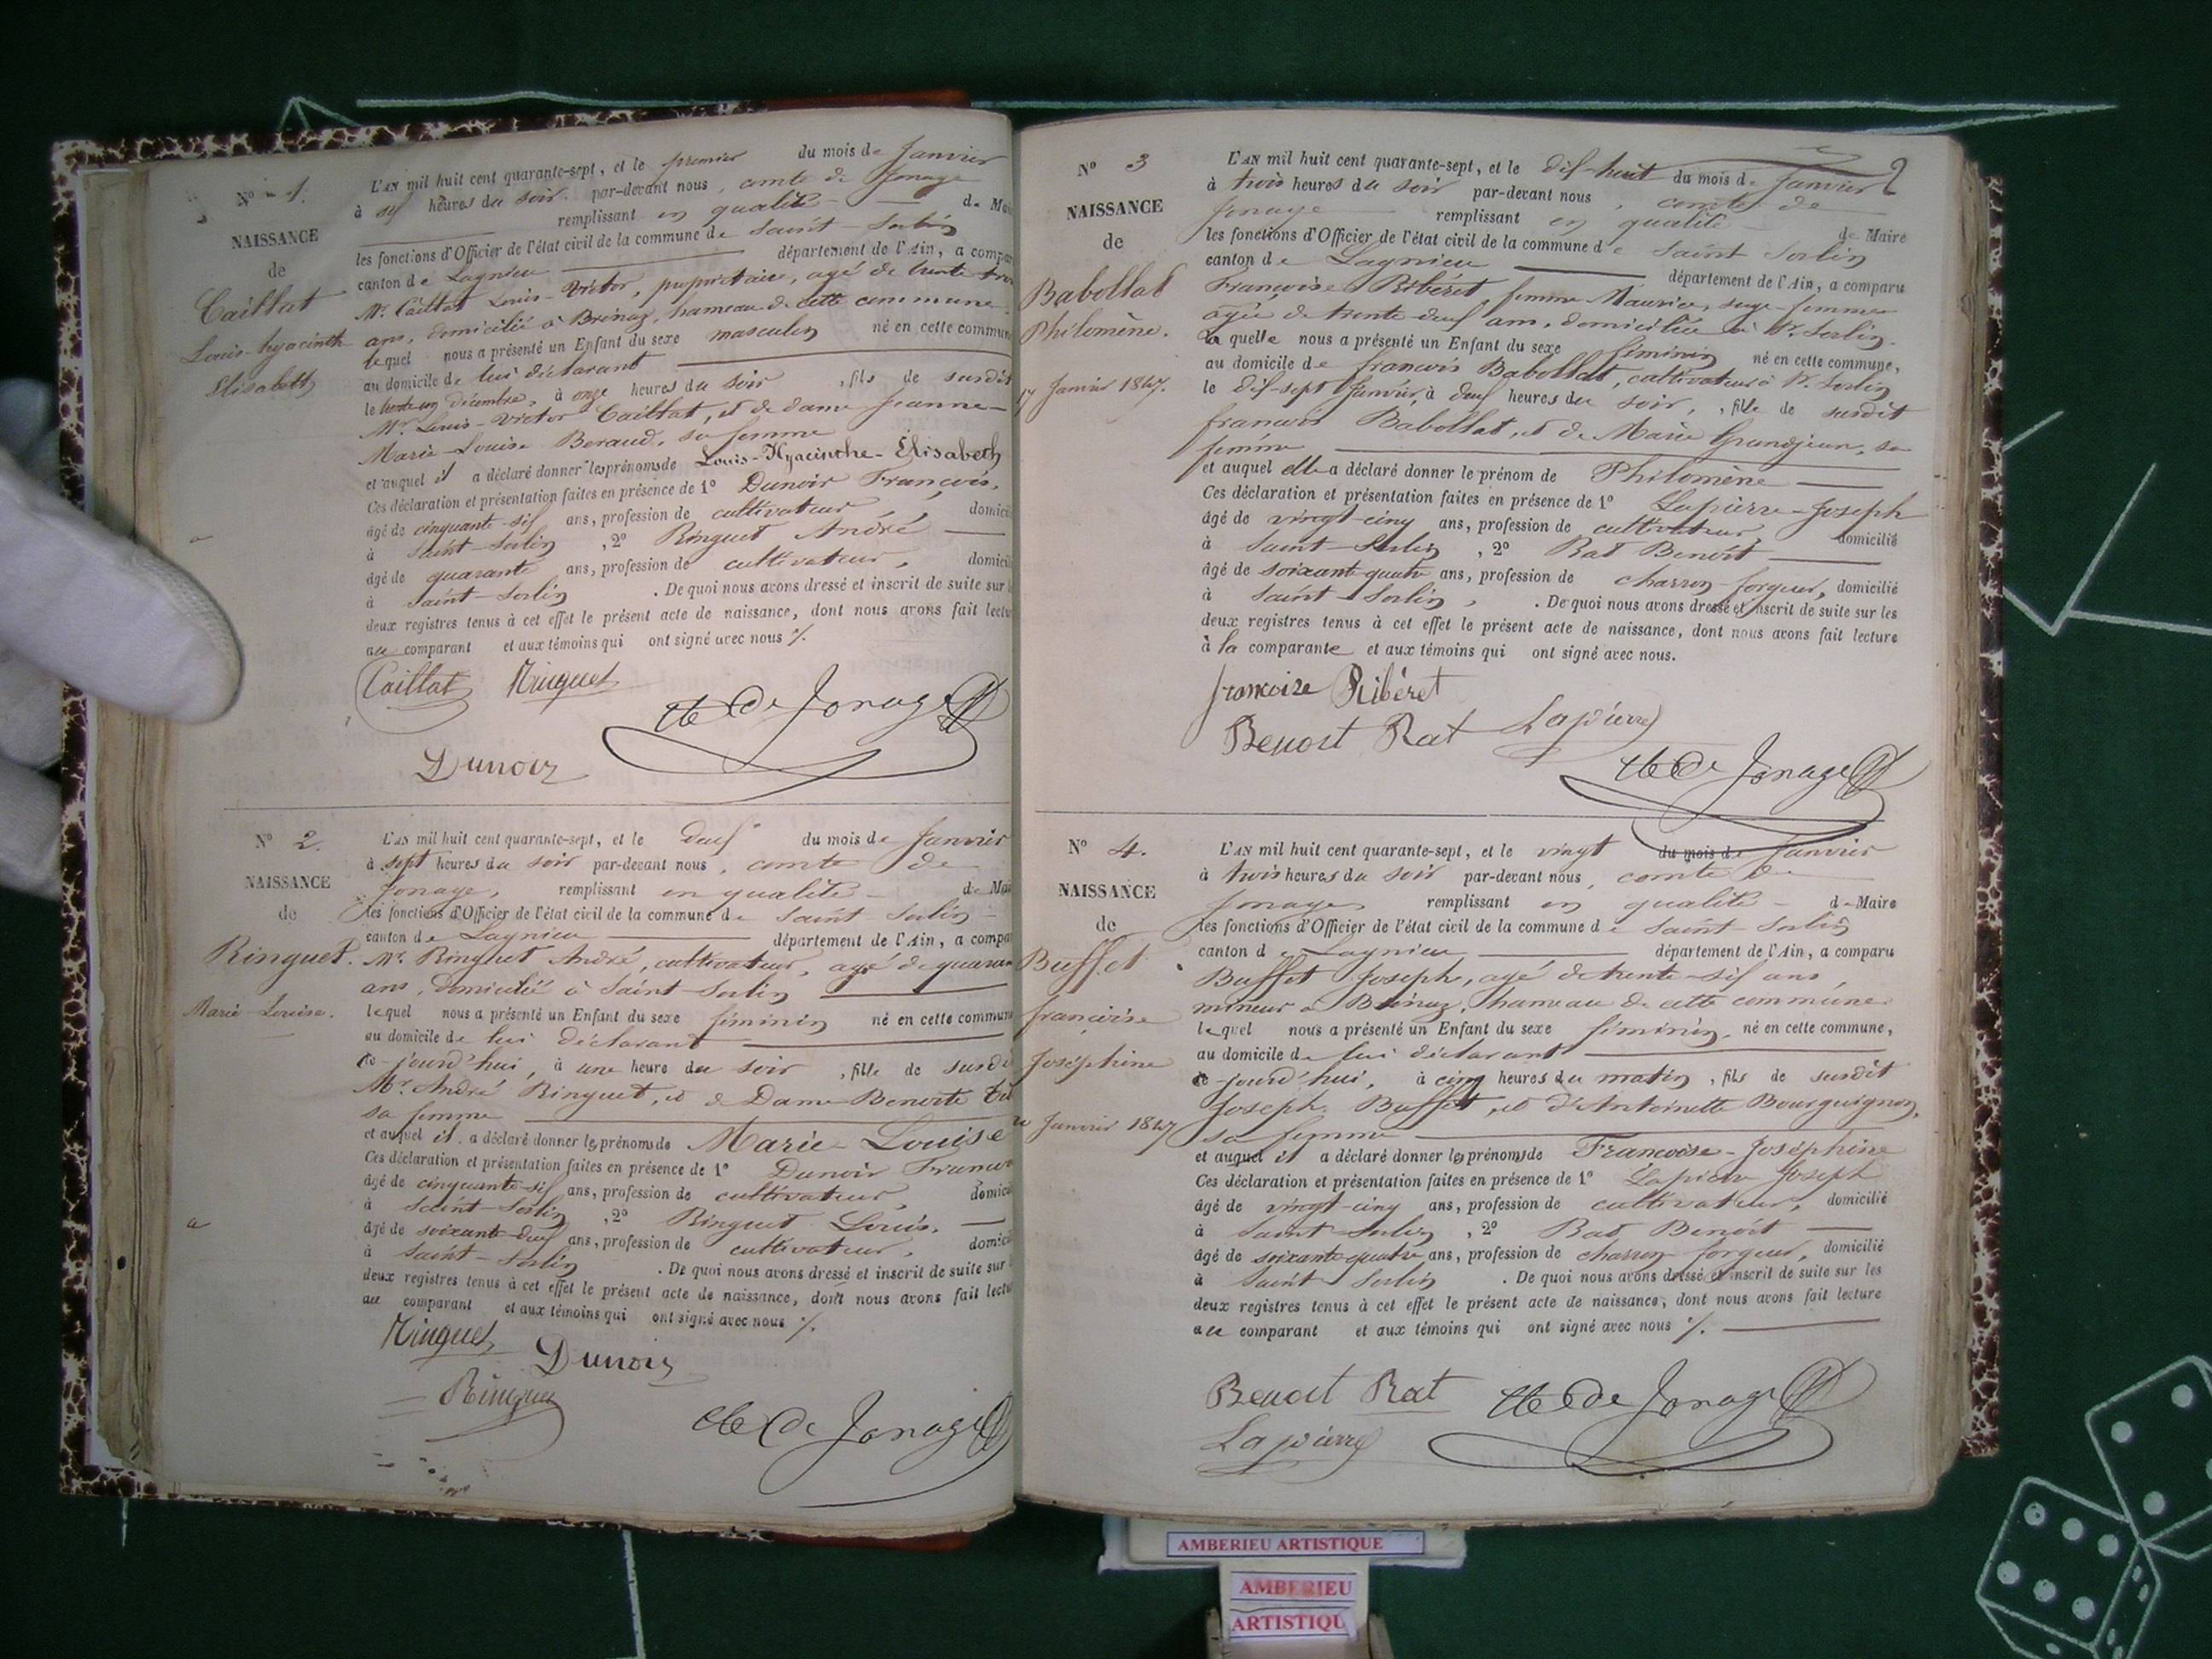 N° 1.
NAISSANCE
de
Caillat
Louis-hyacinth
Elisabeth
L'AN mil huit cent quarante-sept, et le premier du mois de Janvier
à six heures du soir par-devant nous, comte de Jonage
remplissant en qualité de Mai
les fonctions d'Officier de l'état civil de la commune de Saint-Sorlin
canton de Lagnieu département de l'Ain, a compar
Mr. Caillat Louis-Victor, propriétaire, agé de trente trois
ans, domicilié à Brénaz, hameau de cette commune
lequel nous a présenté un Enfant du sexe masculin né en cette commune
au domicile de lui déclarant
le trente un décembre, à onze heures du soir, fils de susdit
Mr. Louis-Victor Caillat, et de dame Jeanne-
Marie-Louise Beraud, sa femme
et auquel il a déclaré donner les prénoms de Louis-Hyacinthe-Élisabeth
Ces déclaration et présentation faites en présence de 1° Dunoir François,
âgé de cinquante-six ans, profession de cultivateur, domici
à Saint-Sorlin, 2° Ringuet André
âgé de quarante ans, profession de cultivateur, domici
à Saint-Sorlin. De quoi nous avons dressé et inscrit de suite sur l
deux registres tenus à cet effet le présent acte de naissance, dont nous avons fait lectu
au comparant et aux témoins qui ont signé avec nous %.
Caillat Ringuet
cte De Jonage
Dunoir
N° 2.
NAISSANCE
de
Ringuet.
Marie-Louise.
L'AN mil huit cent quarante-sept, et le deux du mois de Janvier
à sept heures du soir par-devant nous, comte de
Jonage, remplissant en qualité de Mai
les fonctions d'Officier de l'état civil de la commune de Saint-Sorlin
canton de Lagnieu département de l'Ain, a compa
Mr. Ringuet André, cultivateur, agé de quaran
ans, domicilié à Saint-Sorlin
lequel nous a présenté un Enfant du sexe féminin né en cette commune
au domicile de lui déclarant
ce-jourd'hui, à une heure du soir, fille de susdi
Mr. André Ringuet, et de Dame Benoite
sa femme
et auquel il a déclaré donner les prénoms de Marie-Louise
Ces déclaration et présentation faites en présence de 1° Dunoir Franco
âgé de cinquante-six ans, profession de cultivateur, domici
à Saint-Sorlin, 2° Ringuet Louis.
âgé de soixante-deux ans, profession de cultivateur, domici
à Saint-Sorlin. De quoi nous avons dressé et inscrit de suite sur l
deux registres tenus à cet effet le présent acte de naissance, dont nous avons fait lectu
au comparant et aux témoins qui ont signé avec nous %.
Ringuet Dunoir
Ringuet
cte De Jonage
2
N° 3
NAISSANCE
de
Babollat
Philomène.
17 Janvier 1847.
L'AN mil huit cent quarante-sept, et le dix-huit du mois de Janvier
à trois heures du soir par-devant nous, comte de
Jonage remplissant en qualité de Maire
les fonctions d'Officier de l'état civil de la commune de Saint Sorlin
canton de Lagnieu département de l'Ain, a comparu
Françoise Ribéret, femme Maurice, sage-femme
agée de trente deux ans, domiciliée à St. Sorlin.
La quelle nous a présenté un Enfant du sexe féminin né en cette commune,
au domicile de françois Babollat, cultivateur à St. Sorlin
le dix-sept Janvier, à deux heures du soir, fille de susdit
françois Babollat, et de Marie Grandjean, sa
femme
et auquel elle a déclaré donner le prénom de Philomène
Ces déclaration et présentation faites en présence de 1° Lapierre-Joseph
âgé de vingt-cinq ans, profession de cultivateur, domicilié
à Saint-Sorlin, 2° Rat Benoit
âgé de soixante quatre ans, profession de charron-forgeur, domicilié
à Saint-Sorlin. De quoi nous avons dressé et inscrit de suite sur les
deux registres tenus à cet effet le présent acte de naissance, dont nous avons fait lecture
à la comparante et aux témoins qui ont signé avec nous.
francoise Ribéret
Benoit Rat Lapierre
cte De Jonage
N° 4.
NAISSANCE
de
Buffet
françoise
Joséphine
20 Janvier 1847
L'AN mil huit cent quarante-sept, et le vingt du mois de Janvier
à trois heures du soir par-devant nous, comte de
Jonage remplissant en qualité de Maire
les fonctions d'Officier de l'état civil de la commune de Saint-Sorlin
canton de Lagnieu département de l'Ain, a comparu
Buffet Joseph, agé de trente-six ans,
mineur à Brénaz, hameau de cette commune
lequel nous a présenté un Enfant du sexe féminin, né en cette commune,
au domicile de lui déclarant
ce-jourd'hui, à cinq heures du matin, fils de susdit
Joseph Buffet, et d'Antoinette Bourguignon,
sa femme
et auquel il a déclaré donner les prénoms de Francoise-Joséphine
Ces déclaration et présentation faites en présence de 1° Lapierre Joseph
âgé de vingt-cinq ans, profession de cultivateur, domicilié
à Saint-Sorlin, 2° Rat Benoit
âgé de soixante quatre ans, profession de charron forgeur, domicilié
à Saint Sorlin. De quoi nous avons dressé et inscrit de suite sur les
deux registres tenus à cet effet le présent acte de naissance, dont nous avons fait lecture
au comparant et aux témoins qui ont signé avec nous %.
Benoit Rat cte De Jonage
Lapierre
AMBERIEU ARTISTIQUE
AMBERIEU
ARTISTIQU